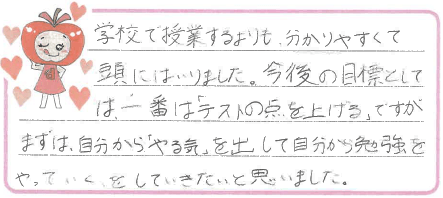 学校で授業するよりも、分かりやすくて
頭にはいりました。今後の目標として
は、一番は「テストの点を上げる」ですが
まずは、自分から「やる気」を出して自分から勉強を
やっていく、をしていきたいと思いました。